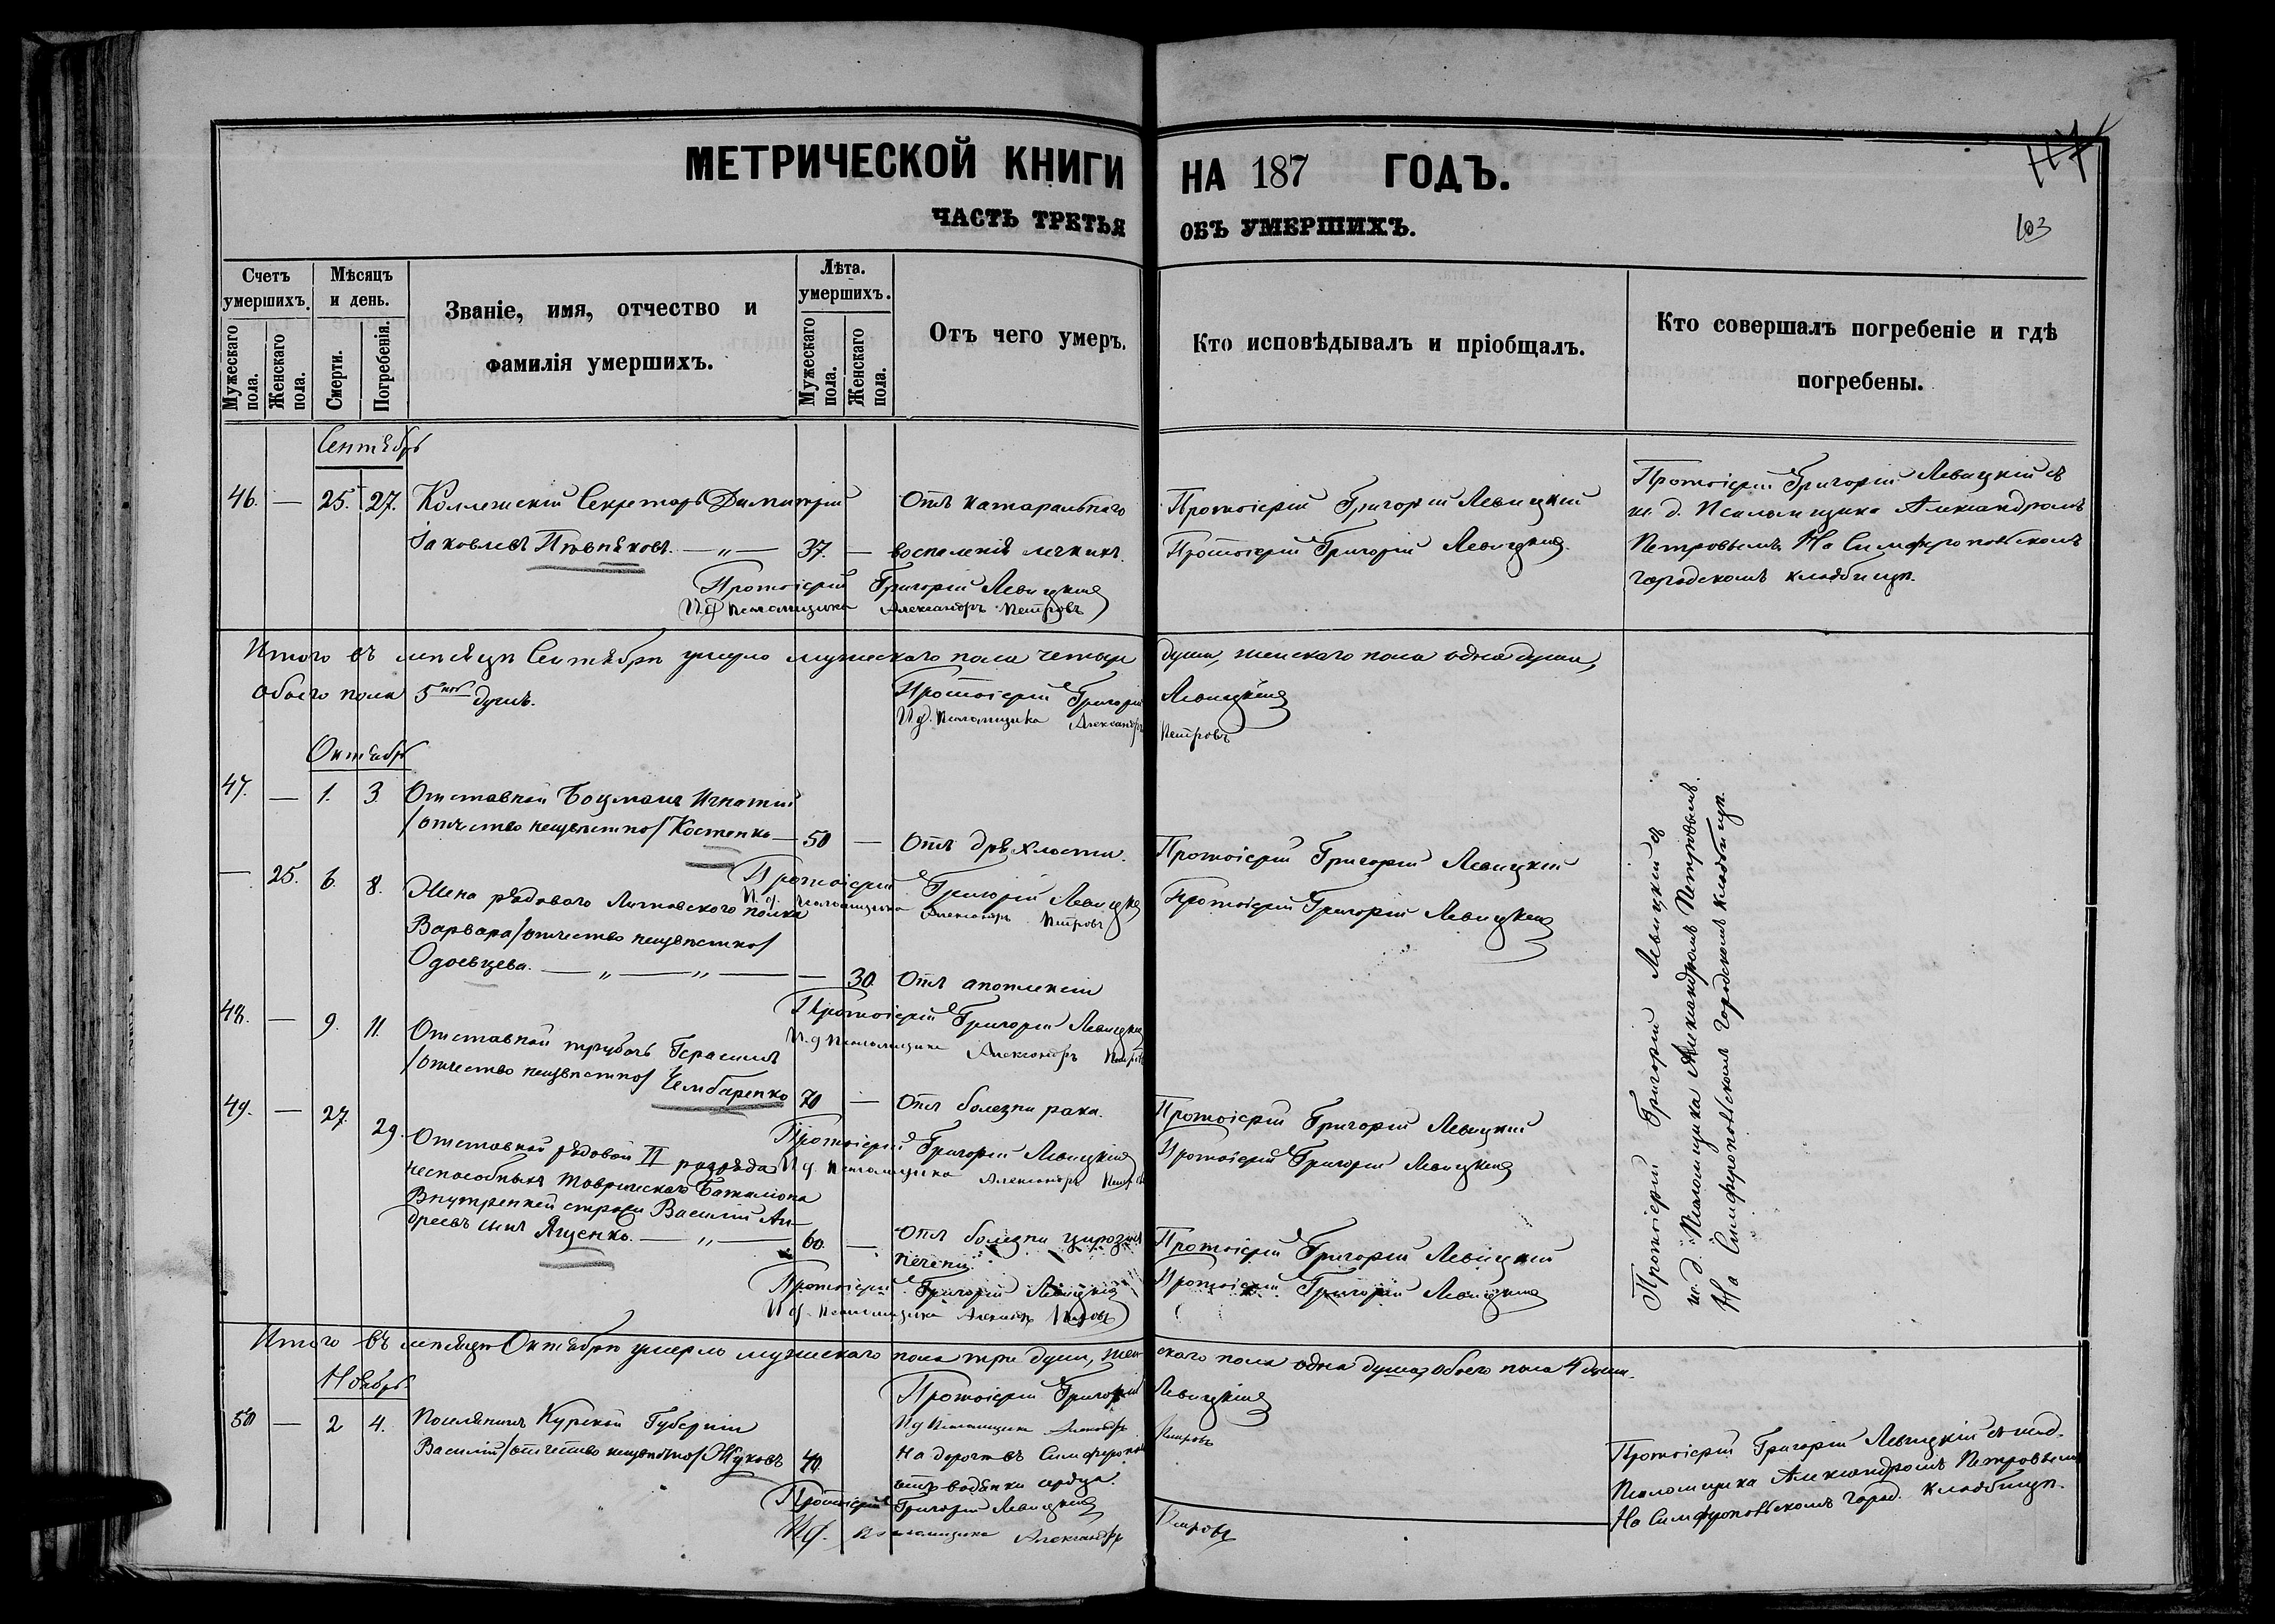 МЕТРИЧЕСКОЙ КНИГИ НА 187 ГОДЪ.
ЧАСТЬ ТРЕТЬЯ ОБЪ УМЕРШИХЪ.
103
Счетъ умершихъ.
Мужескаго пола.
Женскаго пола.
Мѣсяцъ и день.
Смерти.
Погребенія.
Званіе, имя, отчество и
фамилія умершихъ.
Лѣта умершихъ.
Мужескаго пола.
Женскаго пола.
Отъ чего умеръ.
Кто исповѣдывалъ и пріобщалъ.
Кто совершалъ погребеніе и гдѣ
погребены.
Сентябрь
46. — 25. 27. Коллежскій Секретарь Димитрій
Іаковлевъ — „ — 37. —
Отъ катаральнаго
воспаленія легкихъ.
Протоіерей Григорій Левицкій
Протоіерей Григорій Левицкій
Протоіерей Григорій Левицкій съ
и. д. Псаломщика Александромъ
Петровымъ На Симферопольскомъ
городскомъ кладбищѣ.
Протоіерей Григорій Левицкій
И д Псаломщика Александръ Петровъ
Итого въ мѣсяцѣ Сентябрѣ умерло мужескаго пола четыре души, женскаго пола одна душа,
обоего пола 5 душъ.
Протоіерей Григорій Левицкій
И д. Псаломщика Александръ Петровъ
Октябрь
47. — 1. 3. Отставной Боцманъ Игнатій
/отчество неизвѣстно/ Костенко — 50 — Отъ дряхлости.
Протоіерей Григорій Левицкій
Протоіерей Григорій Левицкій
И. д. Псаломщика Александръ Петровъ
Протоіерей Григорій Левицкій
— 25. 6. 8. Жена рядоваго Литовскаго полка
Варвара /отчество неизвѣстно/
Одоевцева. — „ — „ — — 30. Отъ апоплексіи
Протоіерей Григорій Левицкій
И. д Псаломщика Александръ Петровъ
48. — 9. 11. Отставной трубачъ Герасимъ
/отчество неизвѣстно/ Чембаренко 70 — Отъ болезни рака.
Протоіерей Григорій Левицкій
Протоіерей Григорій Левицкій
И д. Псаломщика Александръ Петровъ
Протоіерей Григорій Левицкій
49. — 27. 29. Отставной рядовой II разряда
неспособныхъ Таврическаго Баталіона
Внутренней стражи Василій Ан-
дреевъ сынъ Ященко. — „ — 60. — Отъ болезни
печени.
Протоіерей Григорій Левицкій
Протоіерей Григорій Левицкій
Протоіерей Григорій Левицкій
И д. Псаломщика Александръ Петровъ
Протоіерей Григорій Левицкій съ
и. д. Псаломщика Александромъ Петровымъ.
На Симферопольскомъ городскомъ кладбищѣ.
Итого въ мѣсяцѣ Октябрѣ умерло мужескаго пола три души, женскаго пола одна душа, обоего пола 4 души.
Протоіерей Григорій Левицкій
И д Псаломщика Александръ Петровъ
Ноябрь.
50 — 2 4. Поселянинъ Курской Губерніи
Василій /отчество неизвѣстно/ Жуковъ 40.
На дорогѣ въ Симферополь
отъ водянки сердца.
Протоіерей Григорій Левицкій
И д. Псаломщика Александръ Петровъ
Протоіерей Григорій Левицкій съ и. д.
Псаломщика Александромъ Петровымъ
На Симферопольскомъ город. кладбищѣ.